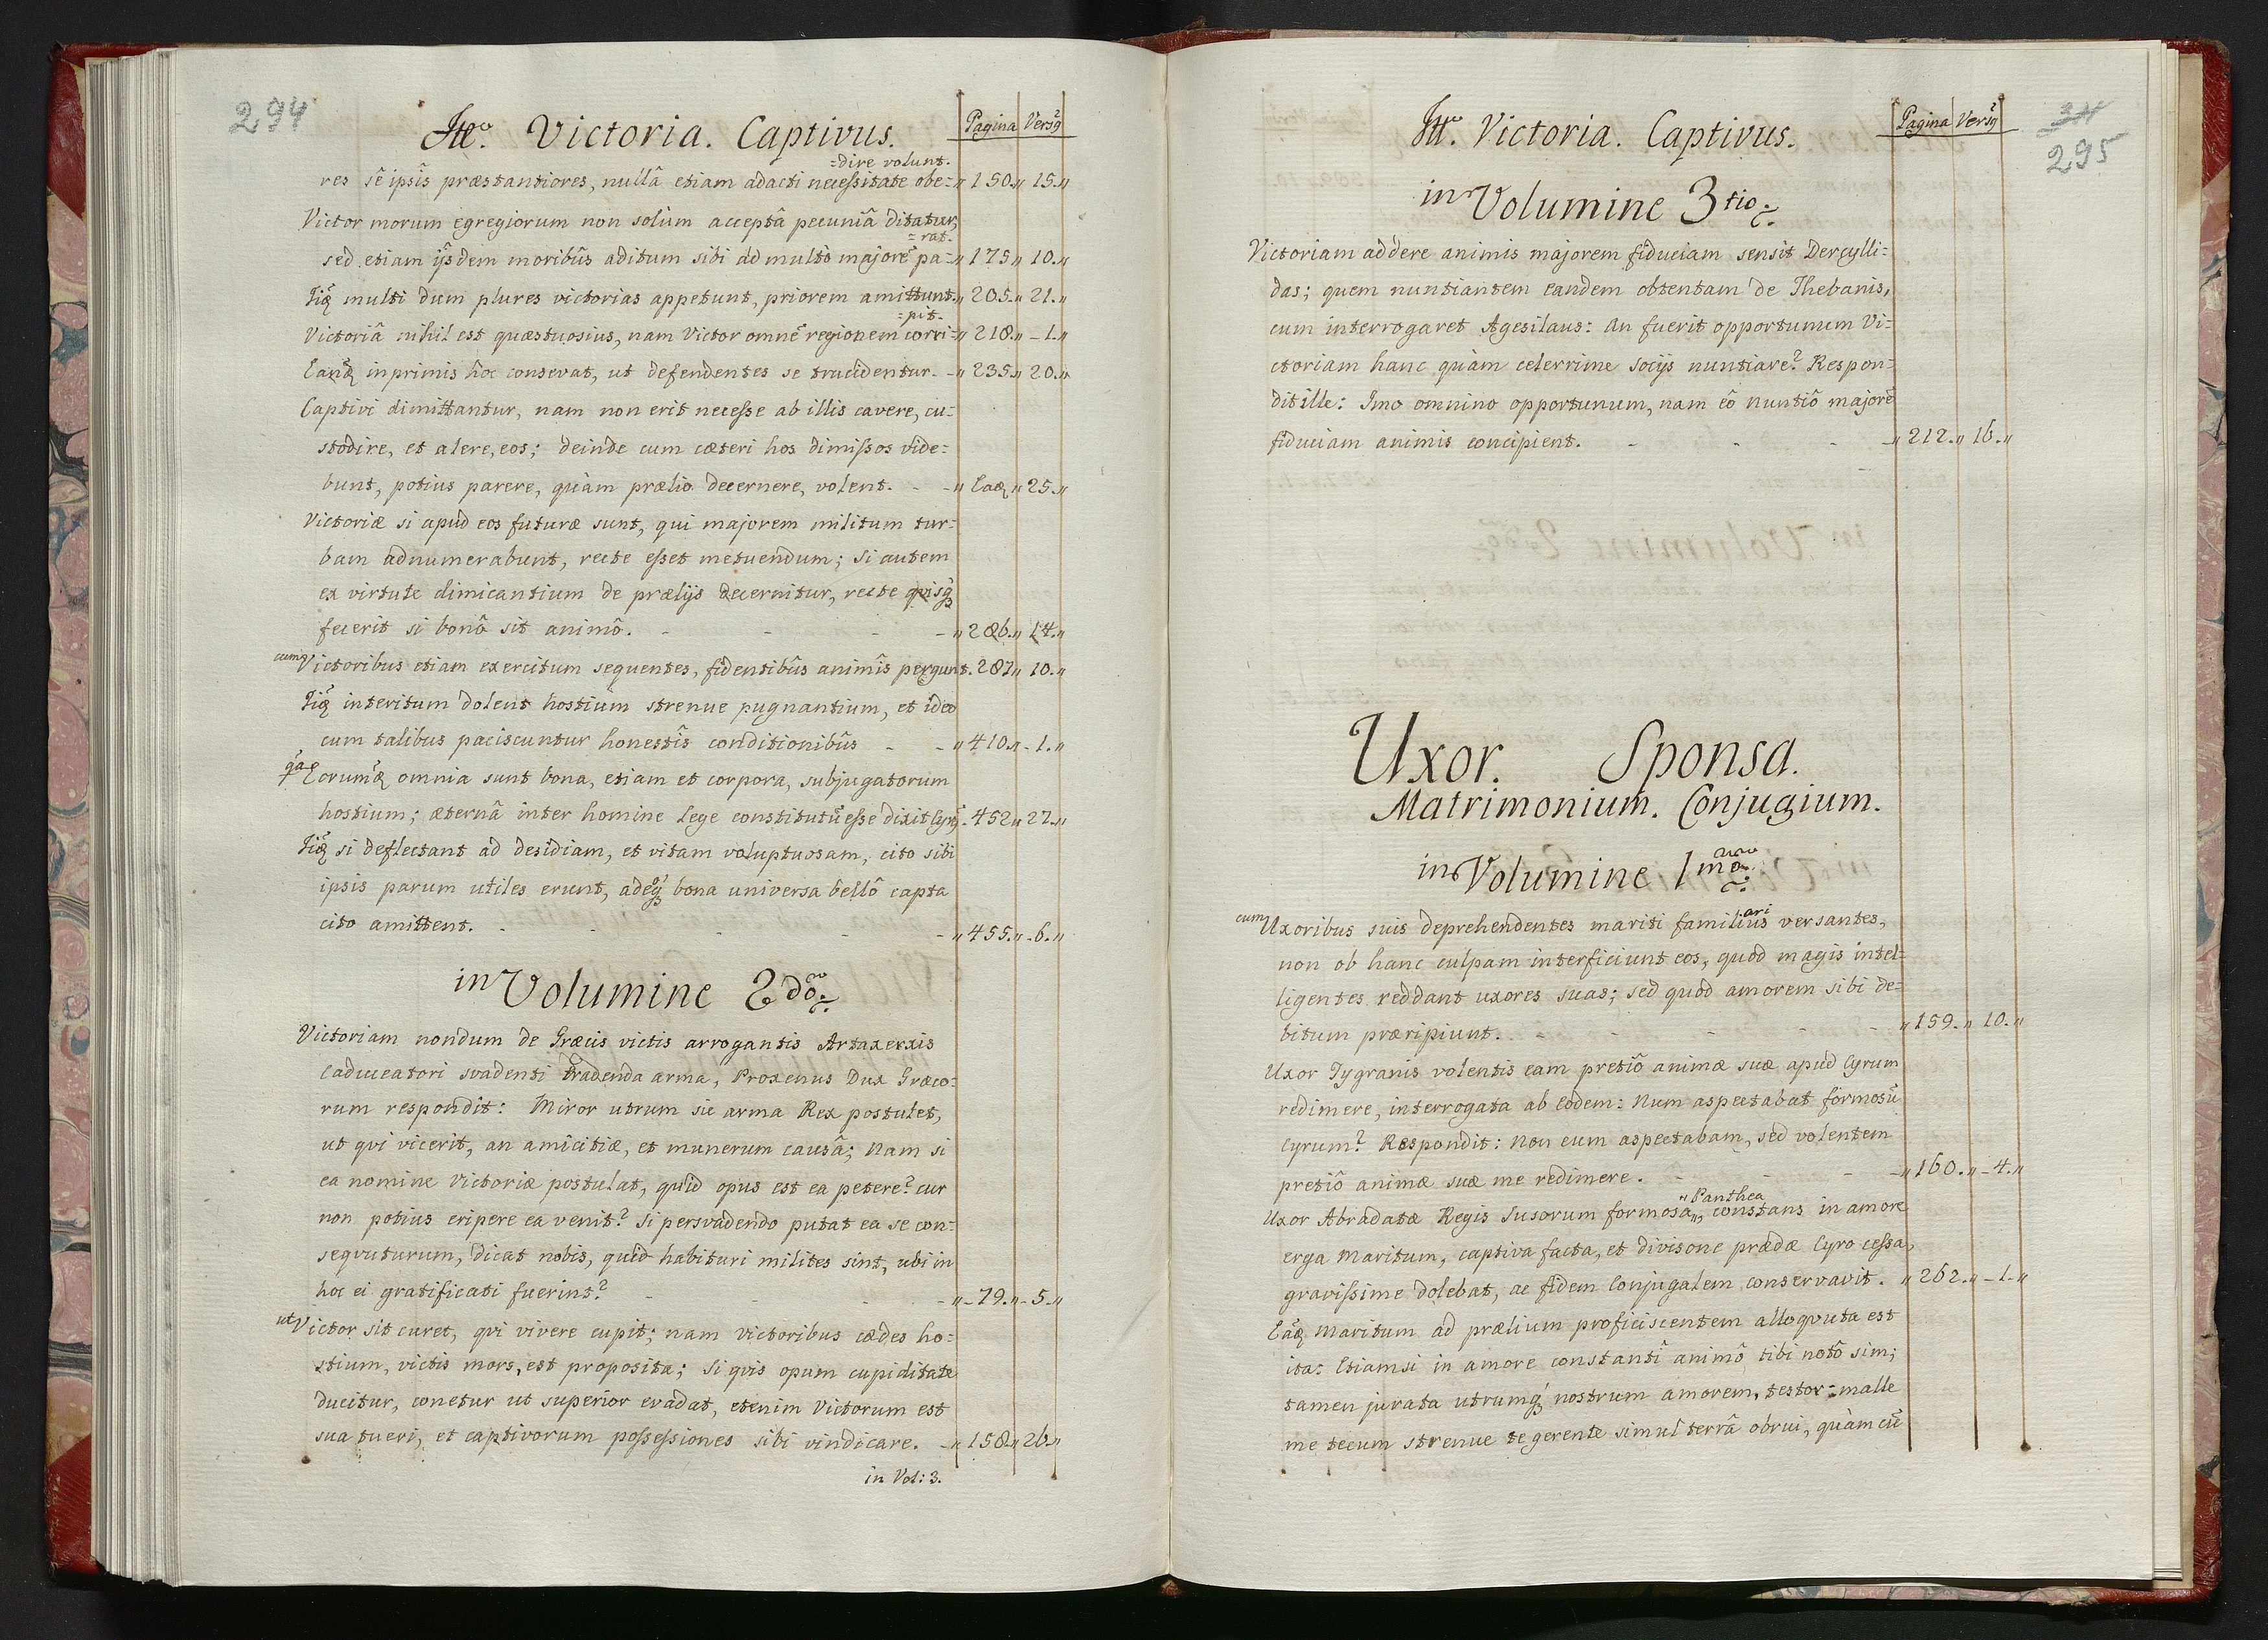 294
Itẽ. Victoria. Captivus.
Pagina Versꝯ
=dire volunt.
res sê ipsîs præstantiores, nullâ etiam adacti necessitate obe= „ 150. „ 15. „
Victor morum egregiorum non solùm acceptâ pecuniâ ditatur,
=rat.
sed etiam ijsdem moribûs aditum sibi ad multò majorẽ pa= „ 175 „ 10. „
Iiq̃ multi dum plures victorias appetunt, priorem amittunt. „ 205. „ 21. „
=pit.
Victoriâ nihil est quæstuosius, nam Victor omnẽ regionem corri= „ 218. „ – 1. „
Eanq̃ inprimis hôc consevat, ut defendentes se trucidentur. – „ 235. „ 20. „
Captivi dimittantur, nam non erit necesse ab illis cavere, cu=
stodire, et alere, eos; deinde cum cæteri hos dimissos vide=
bunt, potius parere, quàm prælio decernere, volent. – – „ Eaq̃ „ 25. „
Victoriæ si apud eos futuræ sunt, qui majorem militum tur=
bam adnumerabunt, recte esset metuendum; si autem
ex virtute dimicantium de prælijs decernitur, recte quisq̃
fecerit si bonô sit animô. – – – – „ 286. „ 14. „
cum Victoribus etiam exercitum sequentes, fidentibûs animîs pergunt. 287 „ 10. „
Iiq̃ interitum dolent hostium strenue pugnantium, et ideo
cum talibus paciscuntur honestîs conditionibûs – – „ 410. „ – 1. „
qa Eorumq̃ omnia sunt bona, etiam et corpora, subjugatorum
hostium; æternâ inter homine Lege constitutũ esse dixit Cyrꝯ. 452 „ 27. „
Iiq̃ si deflectant ad desidiam, et vitam voluptuosam, cito sibi
ipsis parum utiles erunt, adeoq̃ bona universa bellô capta
cito amittent. – – – – – – „ 455. „ – 6. „
in Volumine 2dõ.
Victoriam nondum de Græcis victis arrogantis Artaxerxis
Caduceatori svadenti tradenda arma, Proxenus Dux Græco=
rum respondit: Miror utrum sic arma Rex postulet,
ut qvi vicerit, an amicitiæ, et munerum causâ; Nam si
ea nomine Victoriæ postulat, quid opus est ea petere? cur
non potius eripere ea venit? si persvadendo putat ea se con=
seqvuturum, dicat nobis, quid habituri milites sint, ubi in
hoc ei gratificati fuerint? – – – „ – 79. „ – 5. „
ut Victor sit curet, qvi vivere cupit; nam victoribus cædes ho=
stium, victis mors, est proposita; si qvis opum cupiditate
ducitur, conetur ut superior evadat, etenim Victorum est
sua tueri, et captivorum possessiones sibi vindicare. – „ 158. „ 26. „
in Vol: 3.
Itẽ. Victoria. Captivus.
Pagina Versꝯ
34
295
in Volumine 3tio.
Victoriam addere animis majorem fiduciam sensit Dercylli=
das; quem nuntiantem eandem obtentam de Thebanis,
cum interrogaret Agesilaus: An fuerit opportunum Vi=
ctoriam hanc quàm celerrime socijs nuntiare? Respon=
dit ille: Imo omnino opportunum, nam eô nuntiô majorẽ
fiduciam animis concipient. – – – – „ 212. „ 16. „
Uxor. Sponsa.
Matrimonium. Conjugium.
in Volumine 1mõ.
cum Uxoribus suis deprehendentes mariti familiarius versantes,
non ob hanc culpam interficiunt eos, quod magis intel=
ligentes reddant uxores suas; sed quod amorem sibi de=
bitum præripiunt. – – – – – „ 159. „ 10. „
Uxor Tygranis volentis eam pretiô animæ suæ apud Cyrum
redimere, interrogata ab Eodem: Num aspectabat formosũ
Cyrum? Respondit: Non eum aspectabam, sed volentem
pretiô animæ suæ me redimere. – – – – „ 160. „ – 4. „
„ Panthea
Uxor Abradatæ Regis Susorum formosa „, constans in amore
erga Maritum, captiva facta, et divisone prædæ Cyro cessa,
gravissime dolebat, ac fidem Conjugalem conservavit. „ 262. „ – 1. „
Eaq̃ Maritum ad prælium proficiscentem alloqvuta est
ita: Etiamsi in amore constanti animô tibi notô sim;
tamen jurata utrumq̃ nostrum amorem, testor: malle
me tecum strenue te gerente simul terrâ obrui, quàm cũ